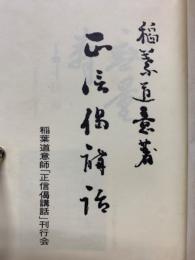 稲葉道意著
正信偈講話
稲葉道意師「正信偈講話」刊行会